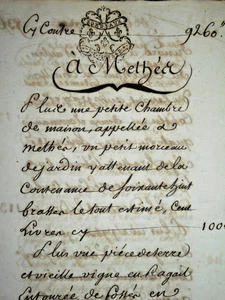 Cy Contre 9260.
à Methér
Plus une petite Chambre
de maison, appellée a
methér, un petit morceau
de jardin y attenant de la
Contenance de soixante huit
brasses le tout estimé, Cent
Livres cy 100
Plus une piéce de terre
et vieille vigne en
Entourée de fossés en